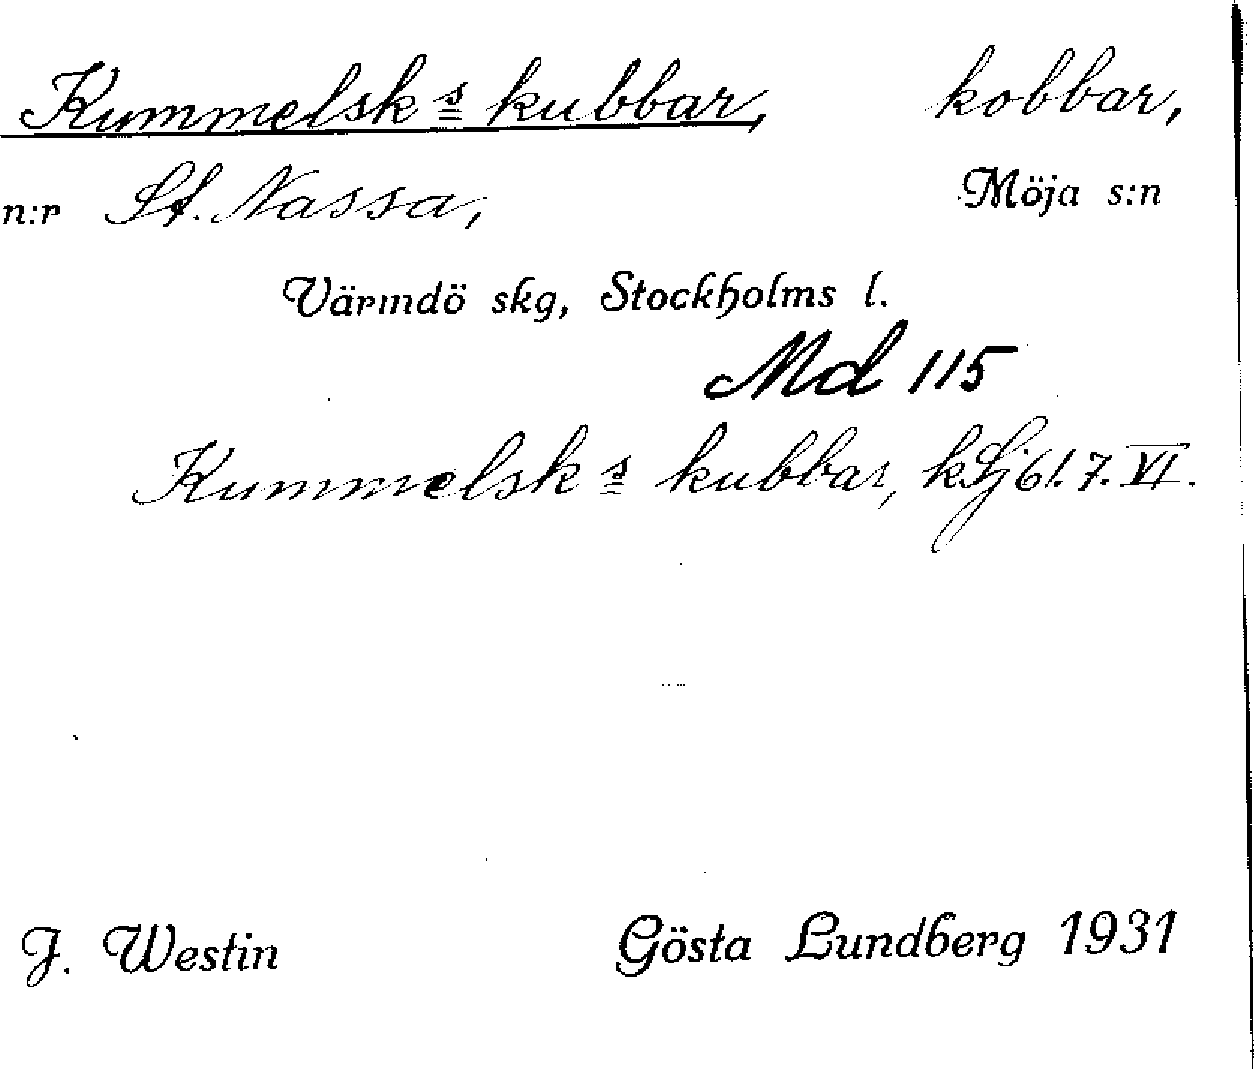 Kummelsk s kubbar, kobbar,
n:r St. Nassa, Möja s:n
Värmdö skg, Stockholms l.
Md 115
Kummelsk s kubbar, kSj 61. 7. VI.
J. Westin Gösta Lundberg 1931